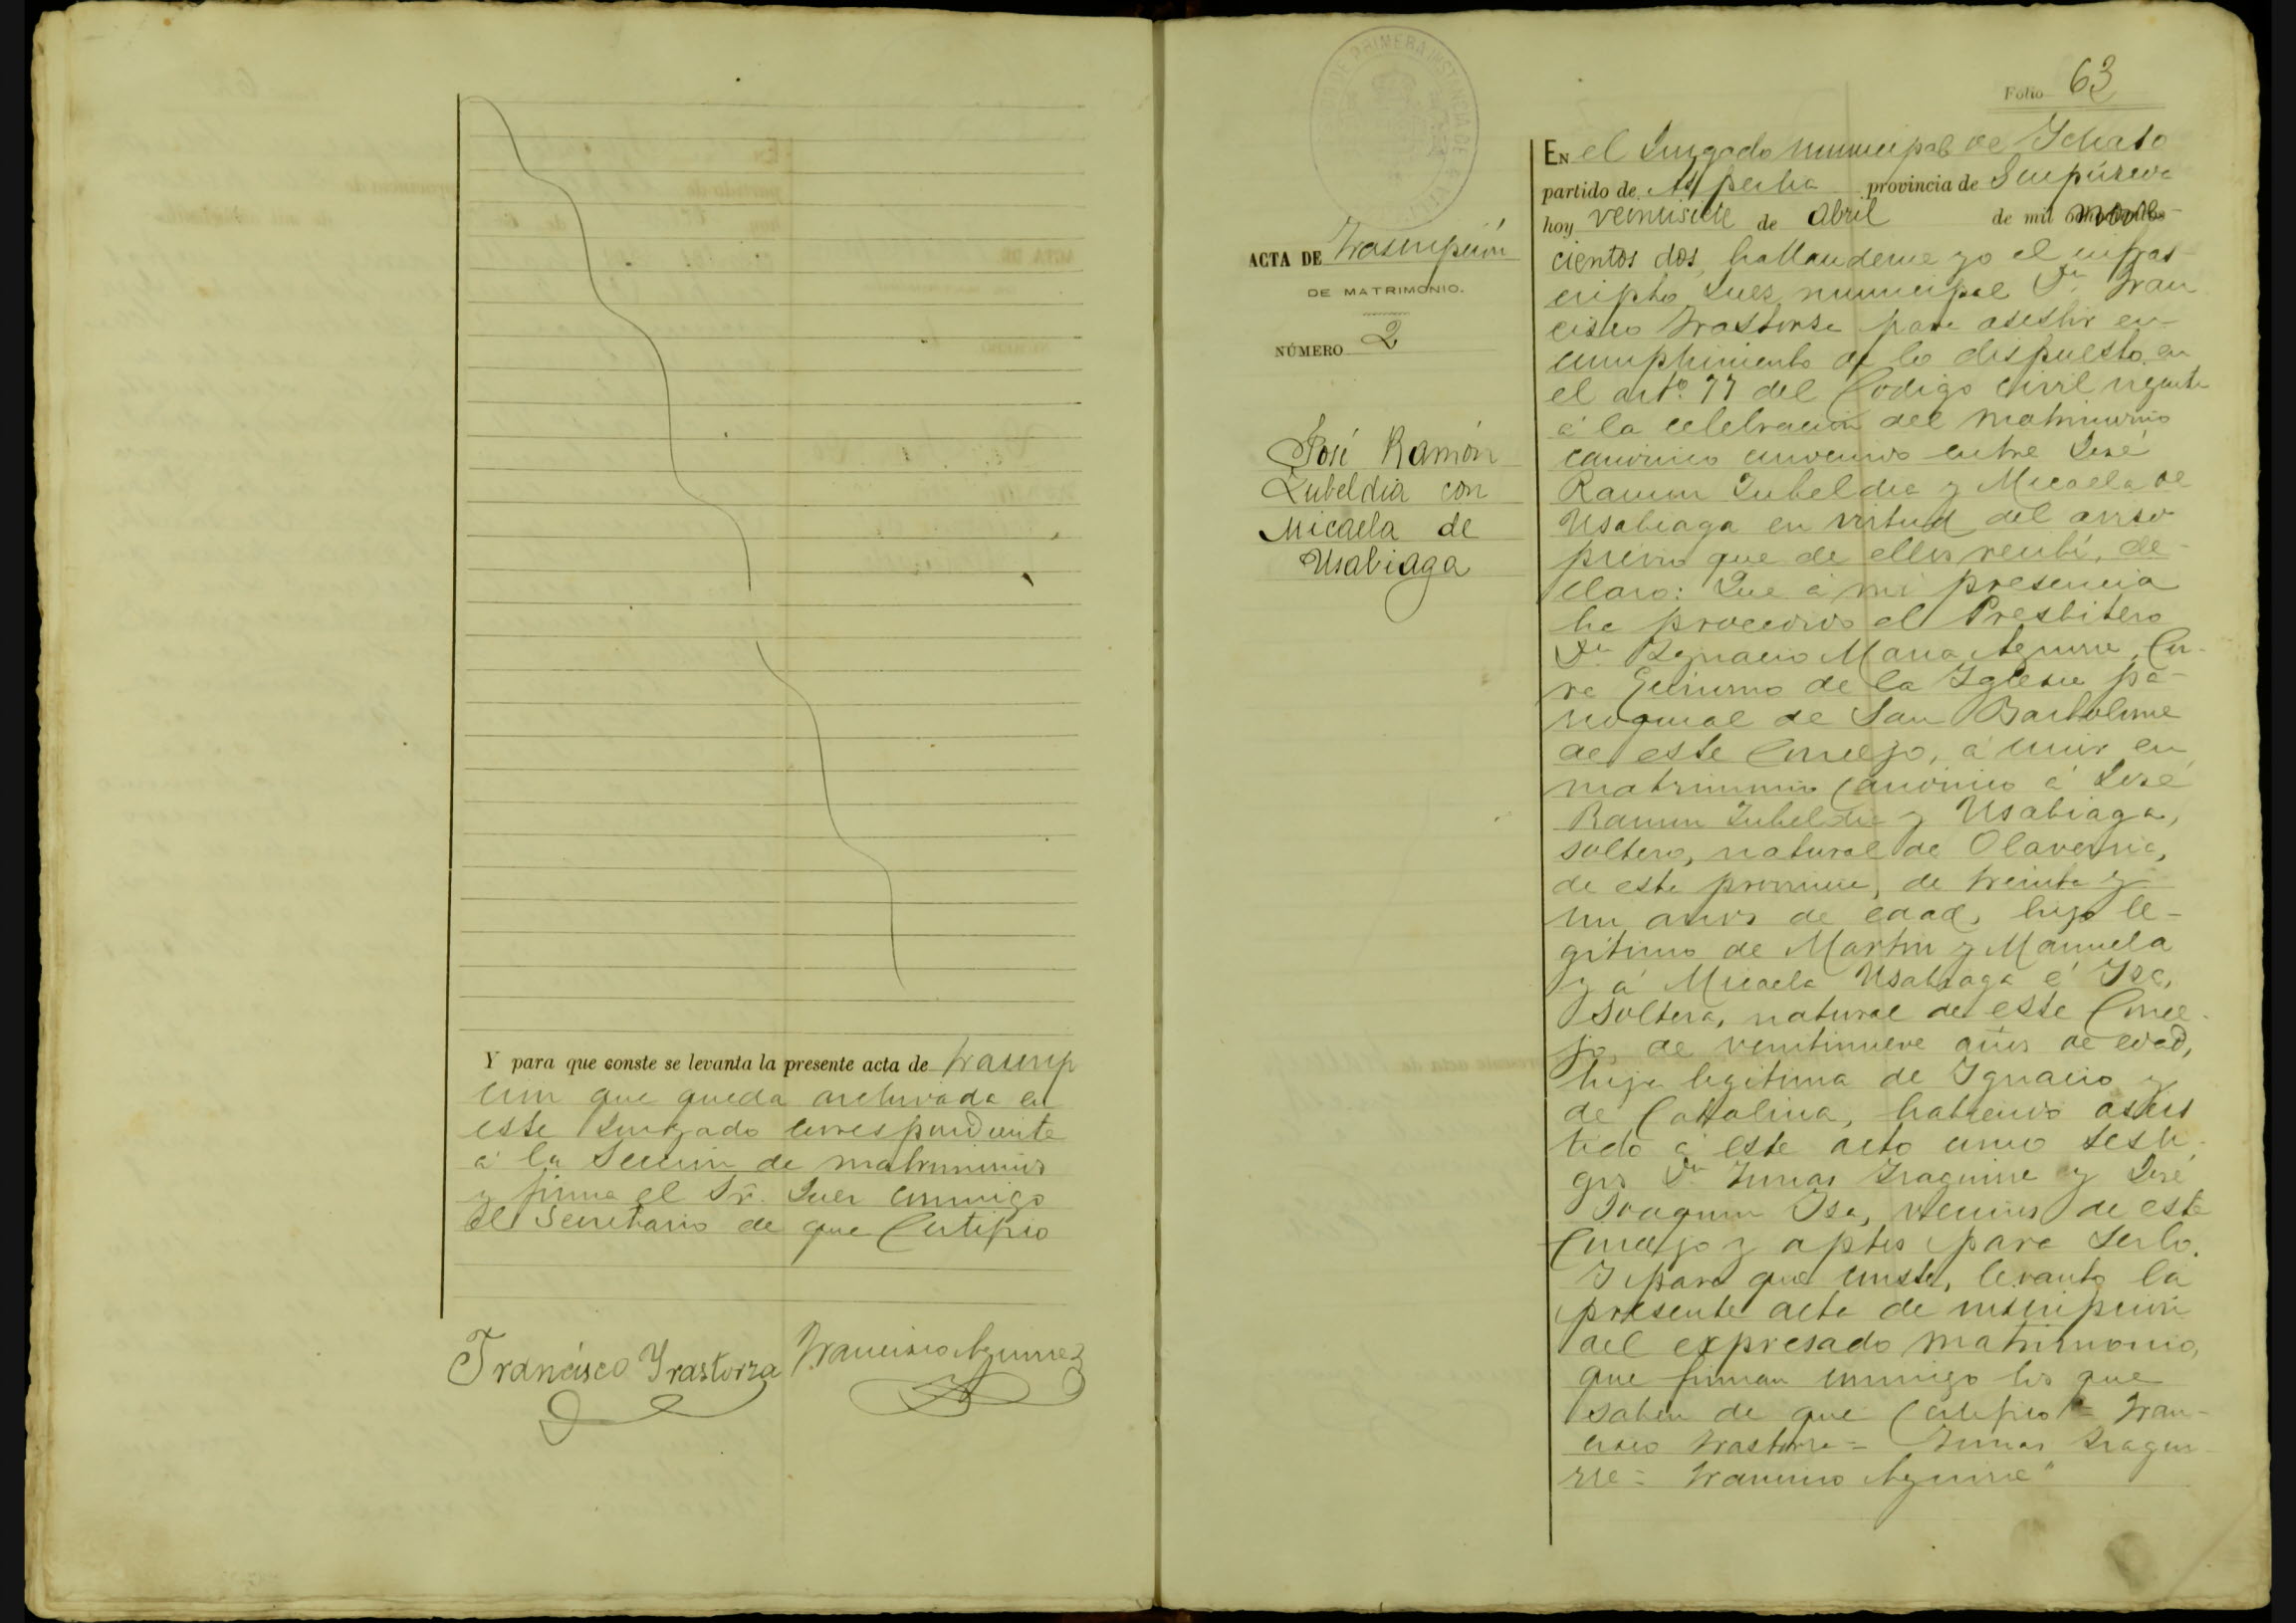 Y para que conste se levanta la presente acta de trascrip
cion que queda archivada en
este Juzgado correspondiente
á la Sección de matrimonios
y firma el Sr. Juez conmigo
el Secretario de que Certifico
Francisco Yrastorza Francisco Aguirre
Folio 63
ACTA DE Trascripción
DE MATRIMONIO.
NÚMERO 2
José Ramón
Zubeldia con
Micaela de
Usabiaga
EN el Juzgado municipal de Ichaso
partido de Azpeitia provincia de Guipúzcoa
hoy veintisiete de Abril de mil nove
cientos dos, hallandome yo el infras
cripto Juez municipal Dn. Fran
cisco Yrastorza para asistir en
cumplimiento de lo dispuesto en
el arto. 77 del Codigo civil vigente
á la celebración del matrimonio
canónico convenido entre José
Ramon Zubeldia y Micaela de
Usabiaga en virtud del aviso
previo que de ellos recibí, de-
claro: Que á mi presencia
ha procedido el Presbitero
Dn. Ygnacio Maria Aguirre, Cu-
ra Ecónomo de la Iglesia pa-
rroquial de San Bartolome
de este Concejo, á unir en
matrimonio canónico á José
Ramon Zubeldia y Usabiaga,
soltero, natural de Olaverria,
de esta provincia, de treinta y
un años de edad, hijo le-
gítimo de Martin y Manuela
y á Micaela Usabiaga é Ysa,
soltera, natural de este Conce-
jo, de veintinueve años de edad,
hija legitima de Ygnacio y
de Catalina, habiendo asis
tido á este acto como testi-
gos Dn. Tomas Yraguirre y José
Joaquin Ysa, vecinos de este
Concejo y aptos para serlo.
Y para que conste, levanto la
presente acta de inscripcion
del expresado matrimonio,
que firman conmigo los que
saben de que Certifico = Fran-
cisco Yrastorza = Tomas Yragui-
rre = Francisco Aguirre"